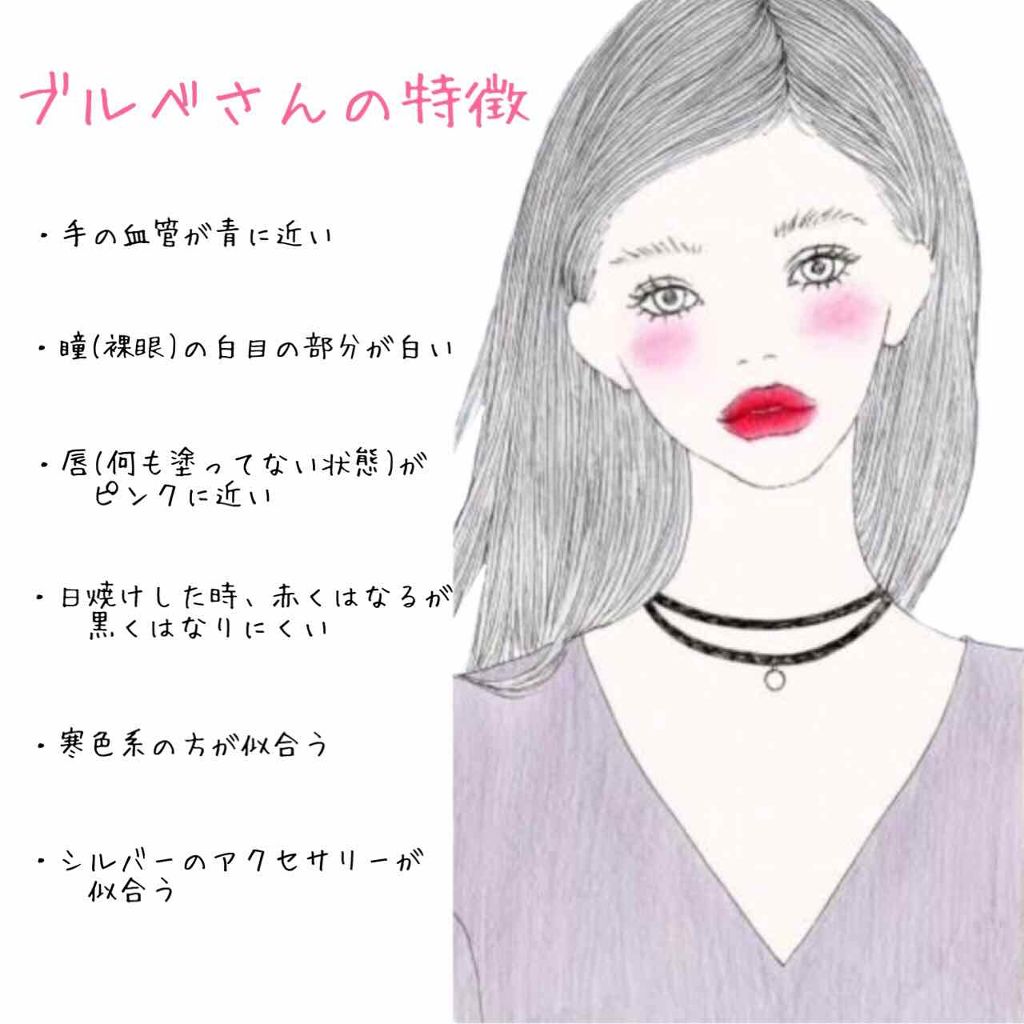 ブルベさんの特徴
・手の血管が青に近い
・瞳(裸眼)の白目の部分が白い
・唇(何も塗ってない状態)が
ピンクに近い
・日焼けした時、赤くはなるが
黒くはなりにくい
・寒色系の方が似合う
・シルバーのアクセサリーが
似合う